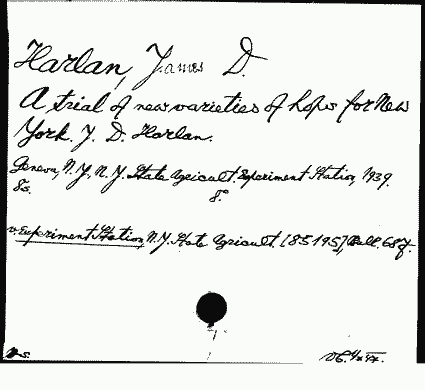 Harlan, James D.
A trial of new varieties of hops for New
York. J. D. Harlan.
Geneva, N.Y., N.Y. State Agricult. Experiment Station, 1939.
8p. 8º
v. Experiment Station, N.Y. State Agricult. [85195], Bull. 687.